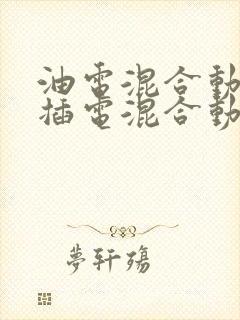 油電混合動
插電混合動
夢軒殤